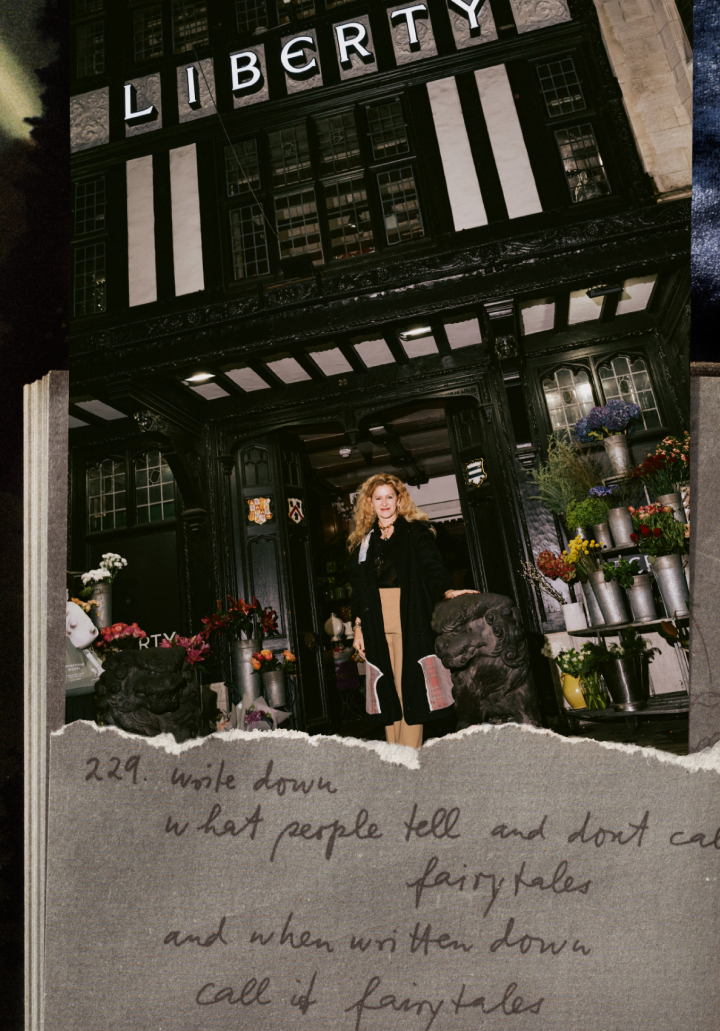 LIBERTY
20
RTY
229. write down
what people tell and dont cal
fairytales
and when written down
call it fairytales